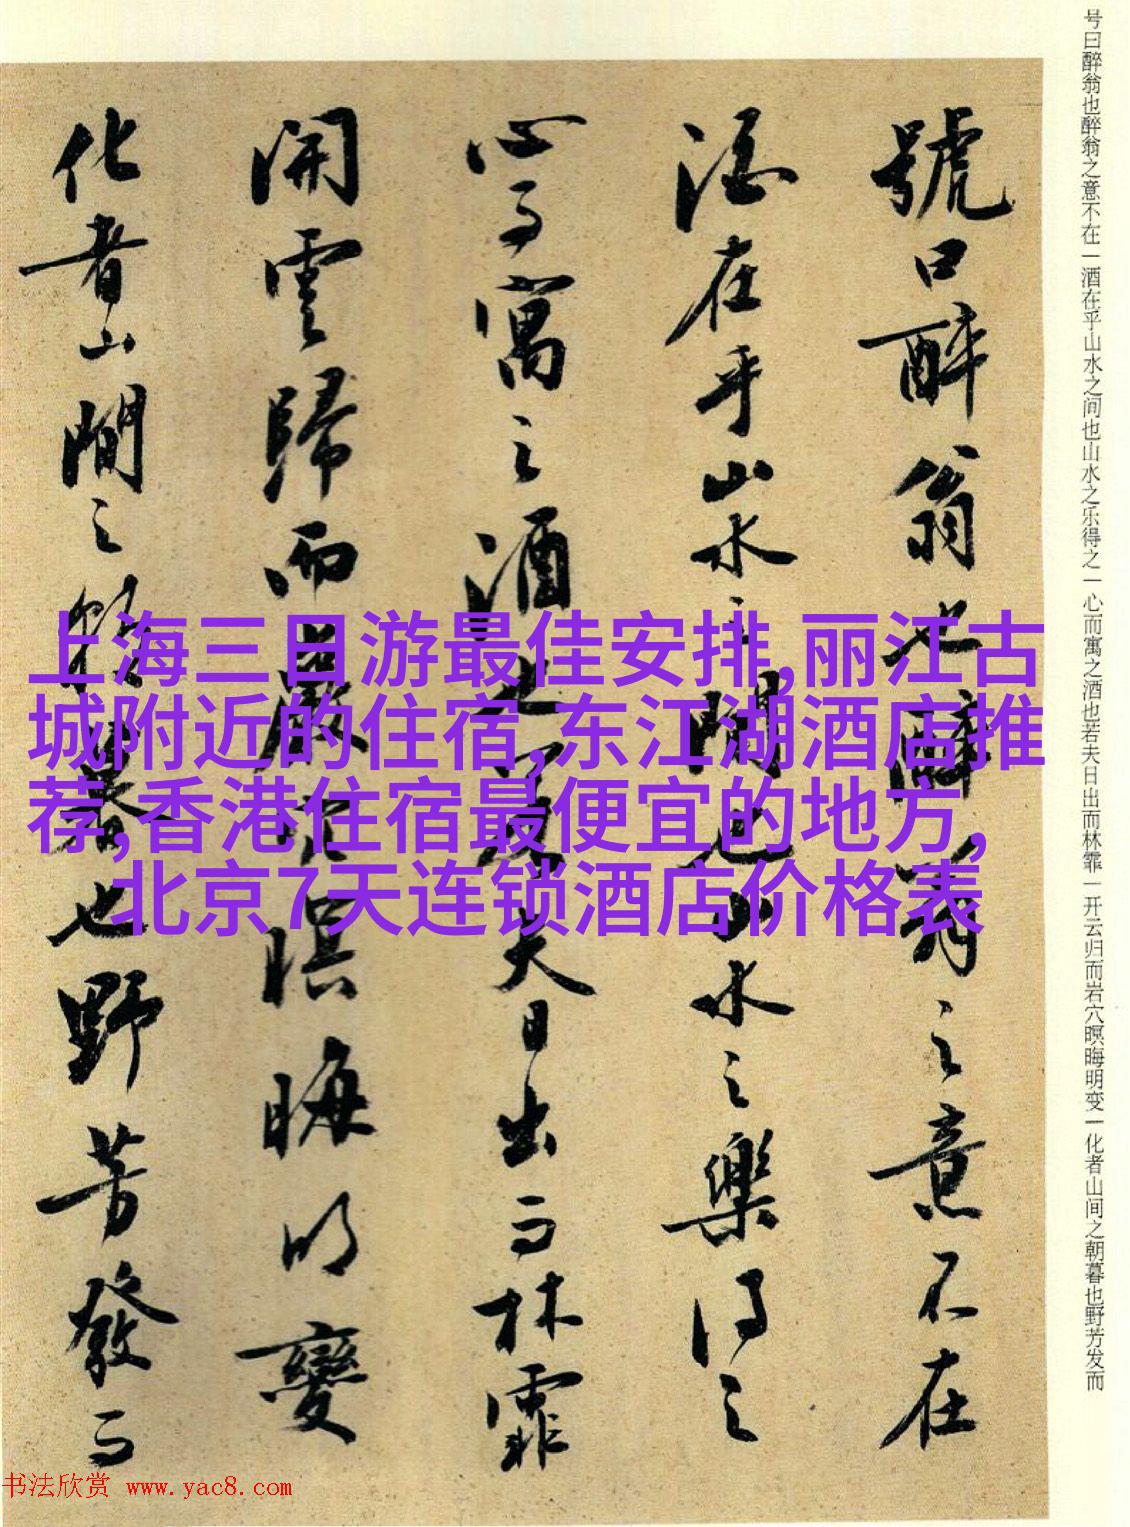 号曰醉翁也醉翁之意不在一酒在乎山水之间也山水之乐得之一心而寓之酒也若夫日出而林霏一开云归而岩穴暝晦明变一化者山间之朝暮也野芳发而
號曰醉翁也醉翁之意不在
酒在乎山水之間也山水之樂得之
心而寓之酒也若夫日出而林霏
開雲歸而巖穴暝晦明變
化者山間之朝暮也野芳發而
上海三日游最佳安排,丽江古
城附近的住宿,东江湖酒店推
荐,香港住宿最便宜的地方,
北京7天连锁酒店价格表
书法欣赏 www.yac8.com